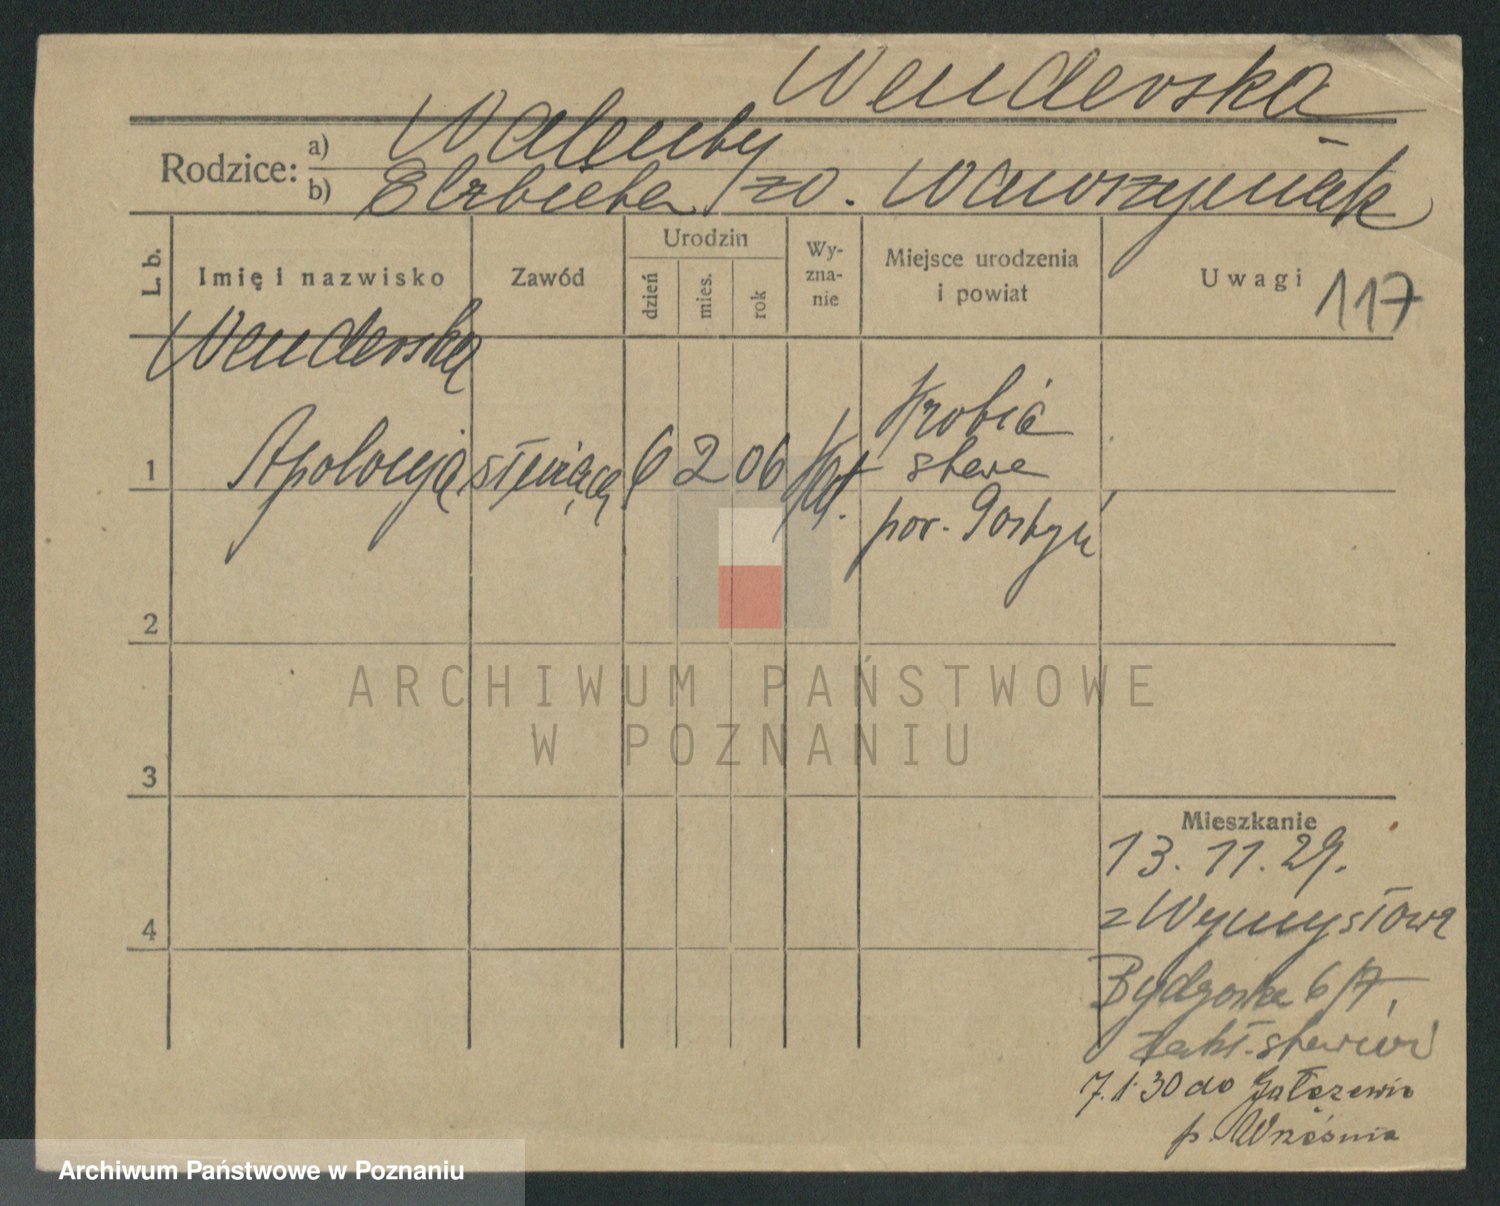 Wenderska
Rodzice: a) Walenty
b) Elżbieta z d. Wawrzyniak
L. b. Imię i nazwisko Zawód Urodzin dzień mies. rok Wy-zna-nie Miejsce urodzenia i powiat Uwagi 117
Wenderska
1 Apolonja służąca 6 2 06 kat. Krobia
stara
pow. Gostyń
2
ARCHIWUM PAŃSTWOWE
W POZNANIU
3
Mieszkanie
13. 11. 29.
z Wymysłowa
4
Bydgoska 6/7,
7. 1. 30 do Gałęzewic
p. Września
Archiwum Państwowe w Poznaniu